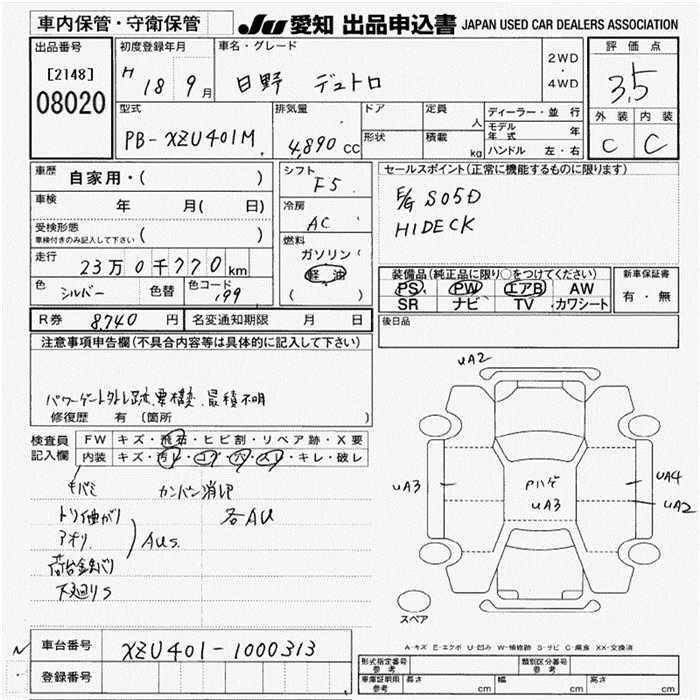 車内保管・守衛保管
JU 愛知 出品申込書 JAPAN USED CAR DEALERS ASSOCIATION
出品番号
[2148]
08020
初度登録年月
H 18 9月
車名・グレード
日野 デュトロ
2WD
・
4WD
評価点
3.5
外装 内装
C C
型式
PB-XZU401M
排気量
4,890 CC
ドア
形状
定員
人
積載
kg
ディーラー・並 行
モデル年式 年
ハンドル 左・右
車歴
自家用・( )
車検
年 月( 日)
受検形態
車検付きのみ記入して下さい ( )
走行
23万0千770km
色
シルバー
色替
色コード
199
シフト
F5
冷房
AC
燃料
ガソリン
軽油
( )
セールスポイント(正常に機能するものに限ります)
E/G S05D
HIDECK
装備品(純正品に限り○をつけてください)
PS PW エアB AW
SR ナビ TV カワシート
新車保証書
有・無
R券 8,740 円
名変通知期限 月 日
後日品
注意事項申告欄(不具合内容等は具体的に記入して下さい)
パワーゲート外し跡
修復歴 有 〔箇所 〕
検査員記入欄
FW キズ・飛石・ヒビ割・リペア跡・X要
内装 キズ・汚レ・コゲ・穴・スレ・キレ・破レ
カンバン消し
各AU
トリイ曲がり
アオリ
AUS
下廻りS
UA2
UA3
Pハゲ
UA3
UA4
UA2
スペア
A-キズ E-エクボ U-凹み W-補修跡 S-サビ C-腐食 XX-交換済
車台番号 XZU401-1000313
登録番号
型式指定番号
参考
類別区分番号
参考
車庫証明用
参考
長さ cm 幅 cm 高さ cm